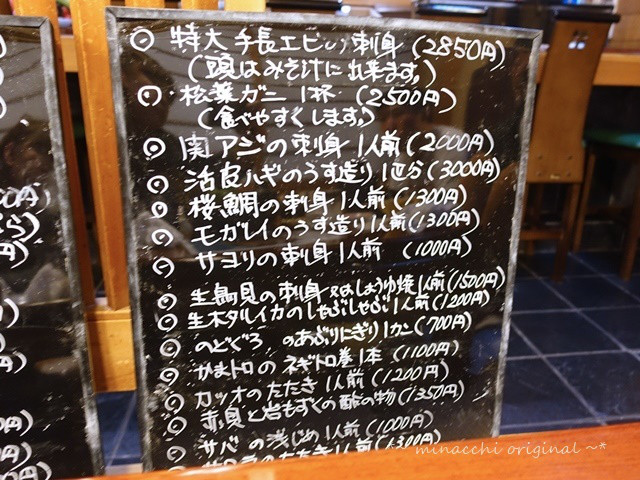 ◎ 特大手長エビの刺身 (2850円)
(頭はみそ汁に出来ます。)
◎ 松葉ガニ 1杯 (2500円)
(食べやすくします。)
◎ 関アジの刺身 1人前 (2000円)
◎ 活皮ハギのうす造り 1匹分 (3000円)
◎ 桜鯛の刺身 1人前 (1300円)
◎ モガレイのうす造り 1人前 (1300円)
◎ サヨリの刺身 1人前 (1000円)
◎ 生鳥貝の刺身又はしょうゆ焼 1人前 (1500円)
◎ 生ホタルイカのしゃぶしゃぶ 1人前 (1200円)
◎ のどぐろ のあぶりにぎり 1カン (700円)
◎ かまトロの ネギトロ巻 1本 (1100円)
◎ カツオのたたき 1人前 (1200円)
◎ 赤貝と岩もずくの酢の物 (1350円)
◎ サバの浅じめ 1人前 (1000円)
のたたき 1人前 (1300円)
minacchi original ~*